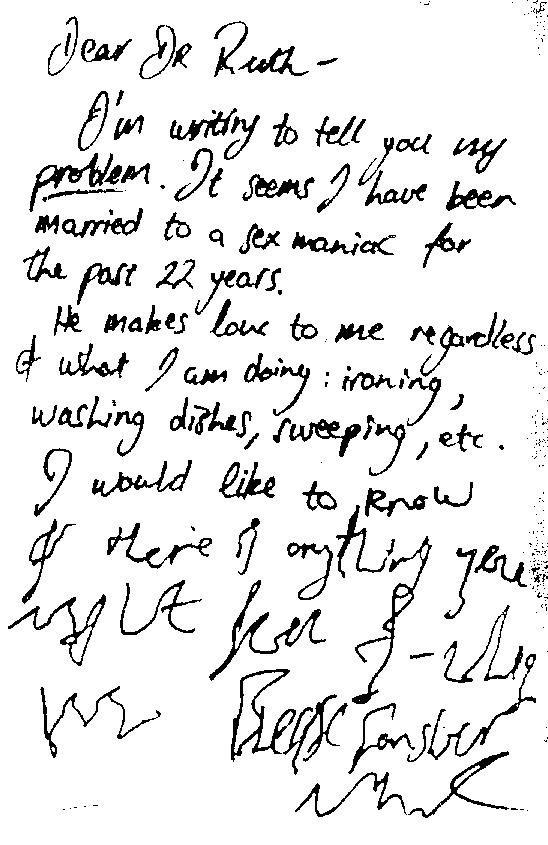 Dear Dr Ruth –
I'm writing to tell you my
problem. It seems I have been
married to a sex maniac for
the past 22 years.
He makes love to me regardless
of what I am doing: ironing,
washing dishes, sweeping, etc.
I would like to know
if there is anything you